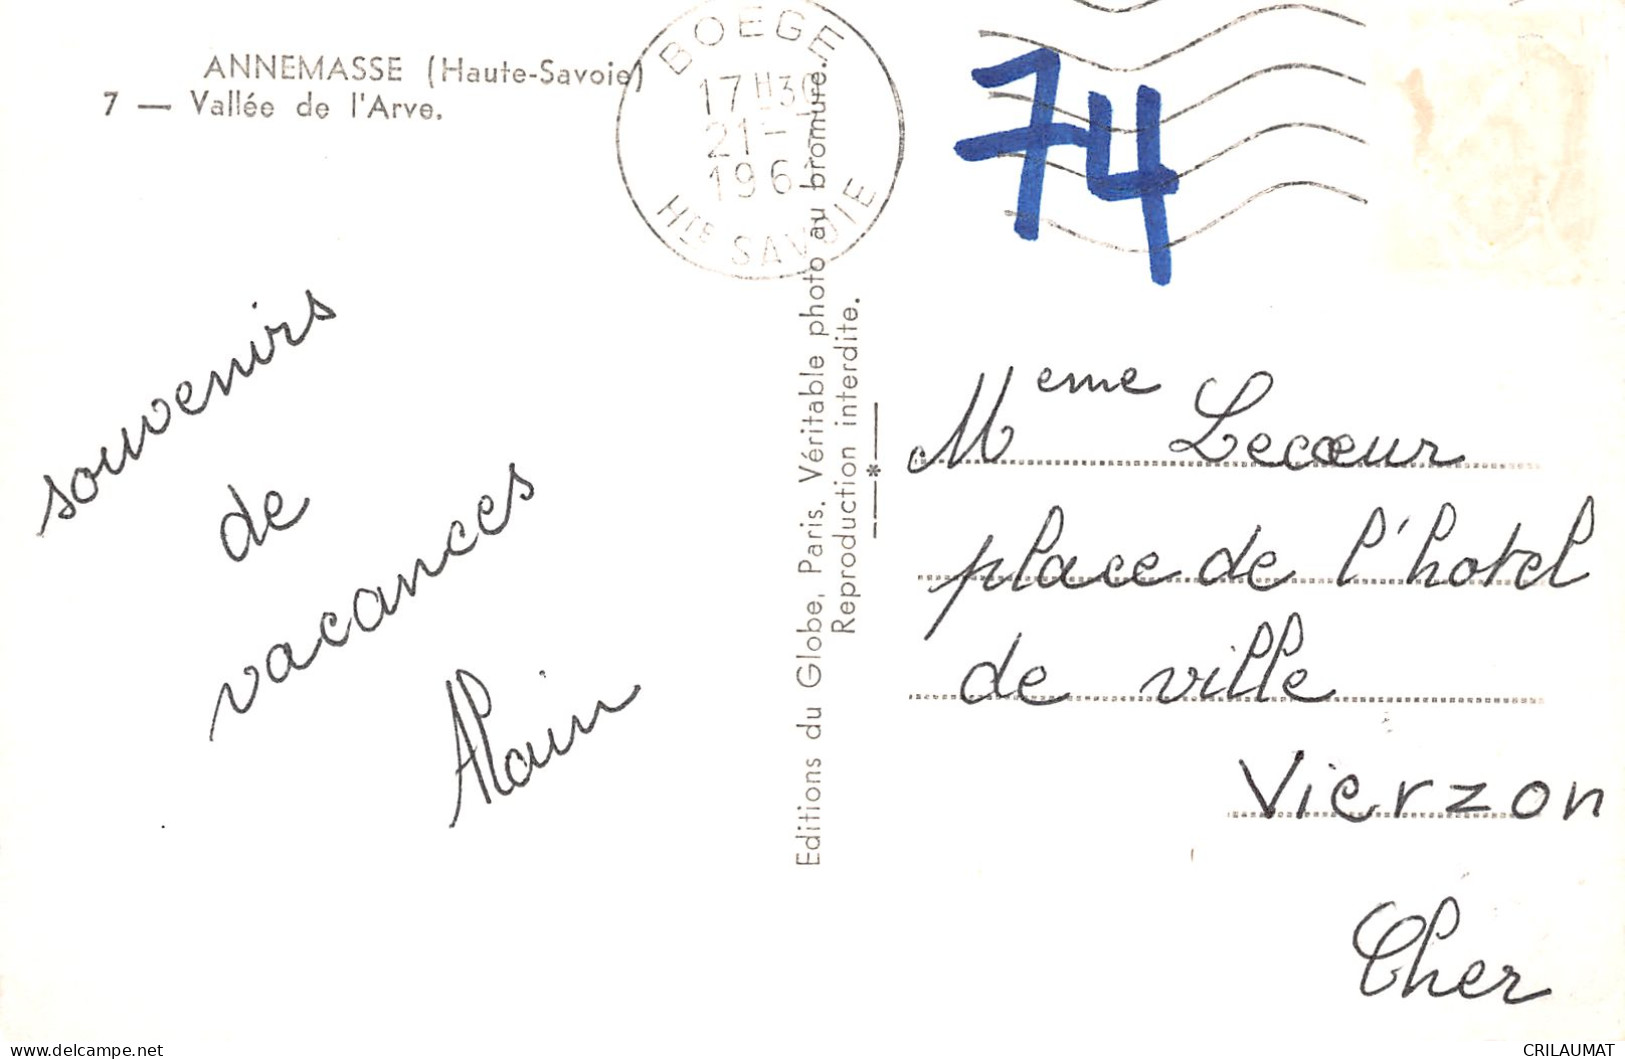 ANNEMASSE (Haute-Savoie)
7 — Vallée de l'Arve.
BOEGE
17H30
21-
196
Hte SAVOIE
74
souvenirs
de
vacances
Alain
Editions du Globe, Paris. Véritable photo au bromure.
Reproduction interdite.
Meme Lecœur
place de l'hotel
de ville
Vierzon
Cher
delcampe.net
CRILAUMAT